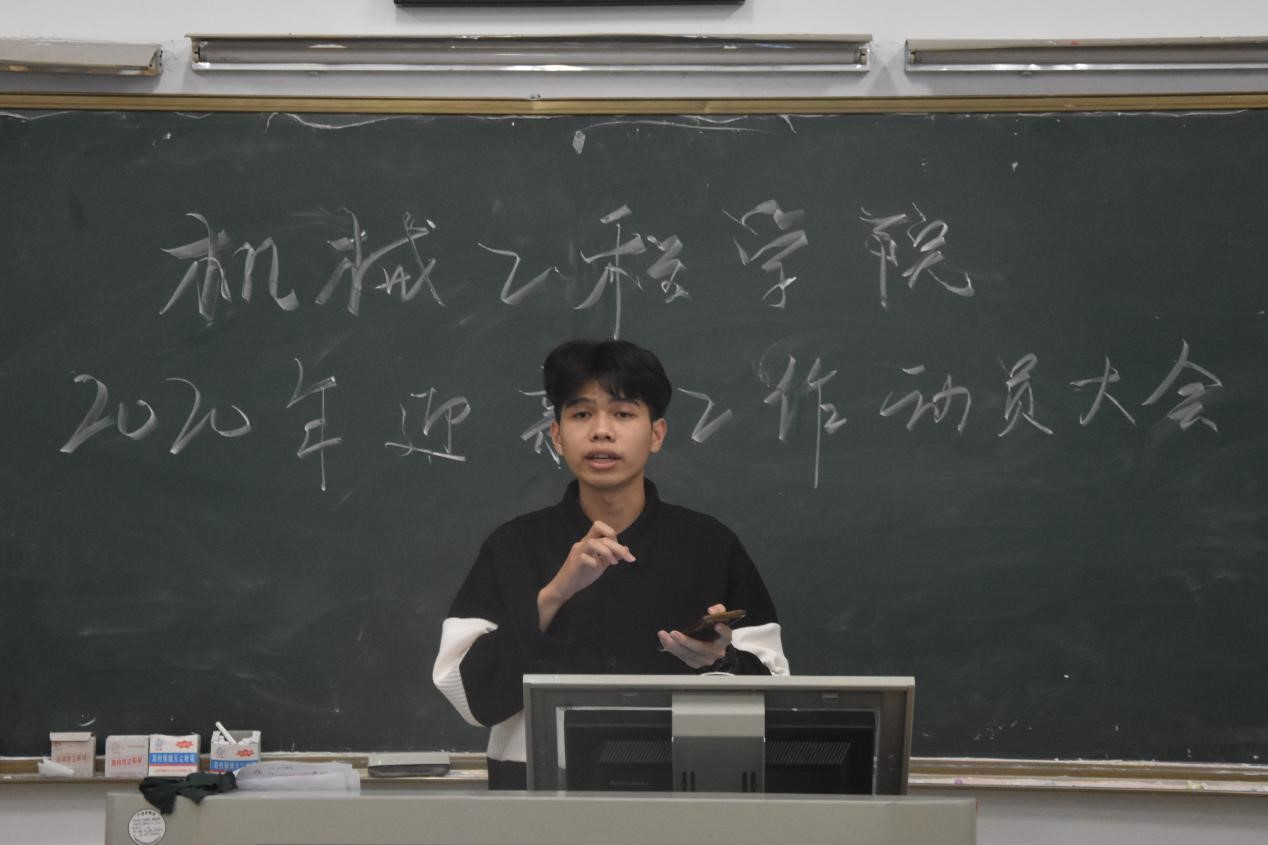 机械工程学院
2020年迎新工作动员大会